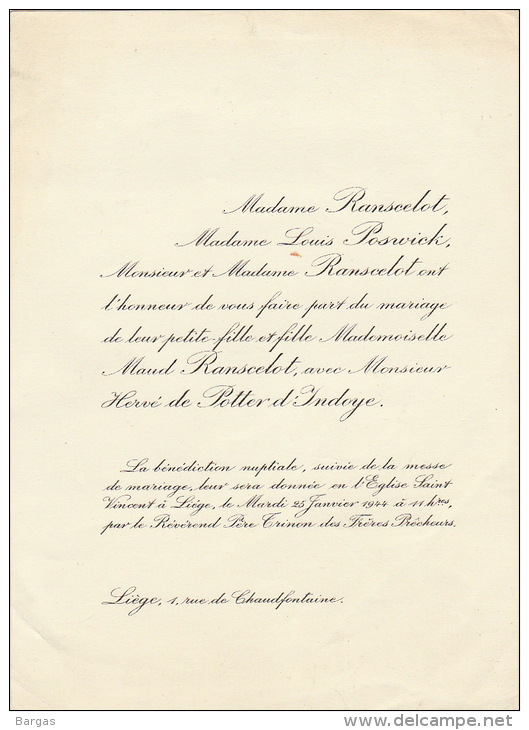 Madame Ranscelot,
Madame Louis Poswick,
Monsieur et Madame Ranscelot ont
l'honneur de vous faire part du mariage
de leur petite-fille et fille Mademoiselle
Maud Ranscelot, avec Monsieur
Hervé de Potter d'Indoye.
La bénédiction nuptiale, suivie de la messe
de mariage, leur sera donnée en l'Eglise Saint
Vincent à Liége, le Mardi 25 Janvier 1944 à 11 hres,
par le Révérend Père Trinon des Frères Prêcheurs.
Liège, 1, rue de Chaudfontaine.
Bargas
www.delcampe.net